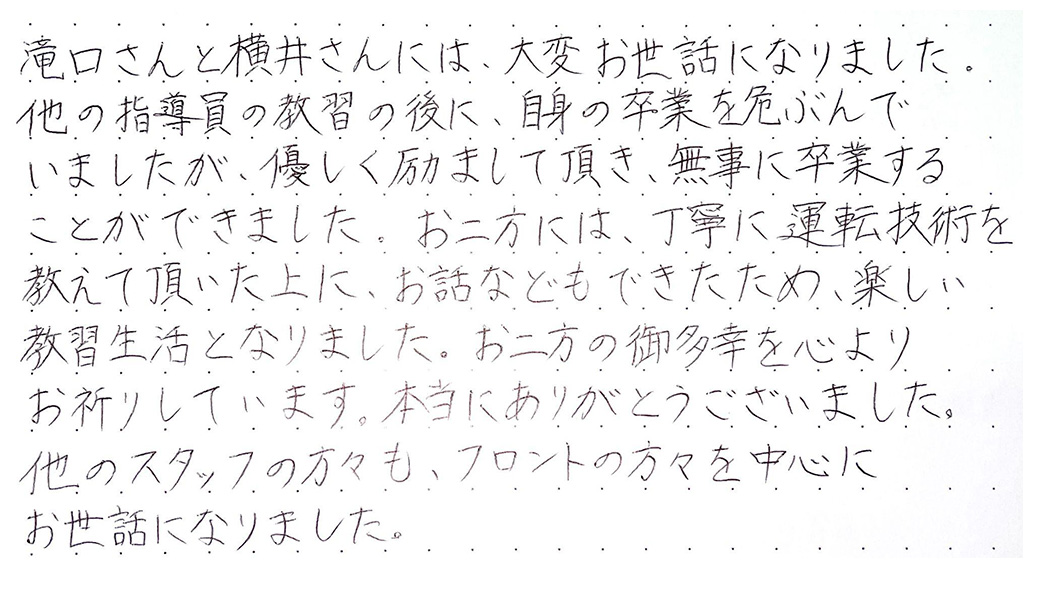 滝口さんと横井さんには、大変お世話になりました。
他の指導員の教習の後に、自身の卒業を危ぶんで
いましたが、優しく励まして頂き、無事に卒業する
ことができました。お二方には、丁寧に運転技術を
教えて頂いた上に、お話などもできたため、楽しい
教習生活となりました。お二方の御多幸を心より
お祈りしています。本当にありがとうございました。
他のスタッフの方々も、フロントの方々を中心に
お世話になりました。